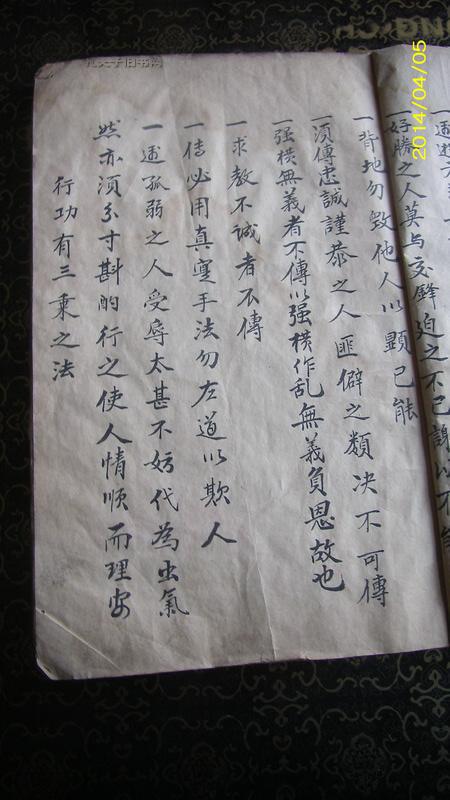 一好勝之人莫与交鋒迫之不已謝以不
一背地勿毀他人以顯己能
一須傳忠誠謹恭之人匪僻之類决不可傳
一强横無義者不傳以强横作乱無義負恩故也
一求教不诚者不傳
一傳必用真寔手法勿左道以欺人
一遇孤弱之人受辱太甚不妨代為出氣
然亦須分寸斟酌行之使人情順而理安
行功有三乗之法
2014/04/05
孔夫子旧书网